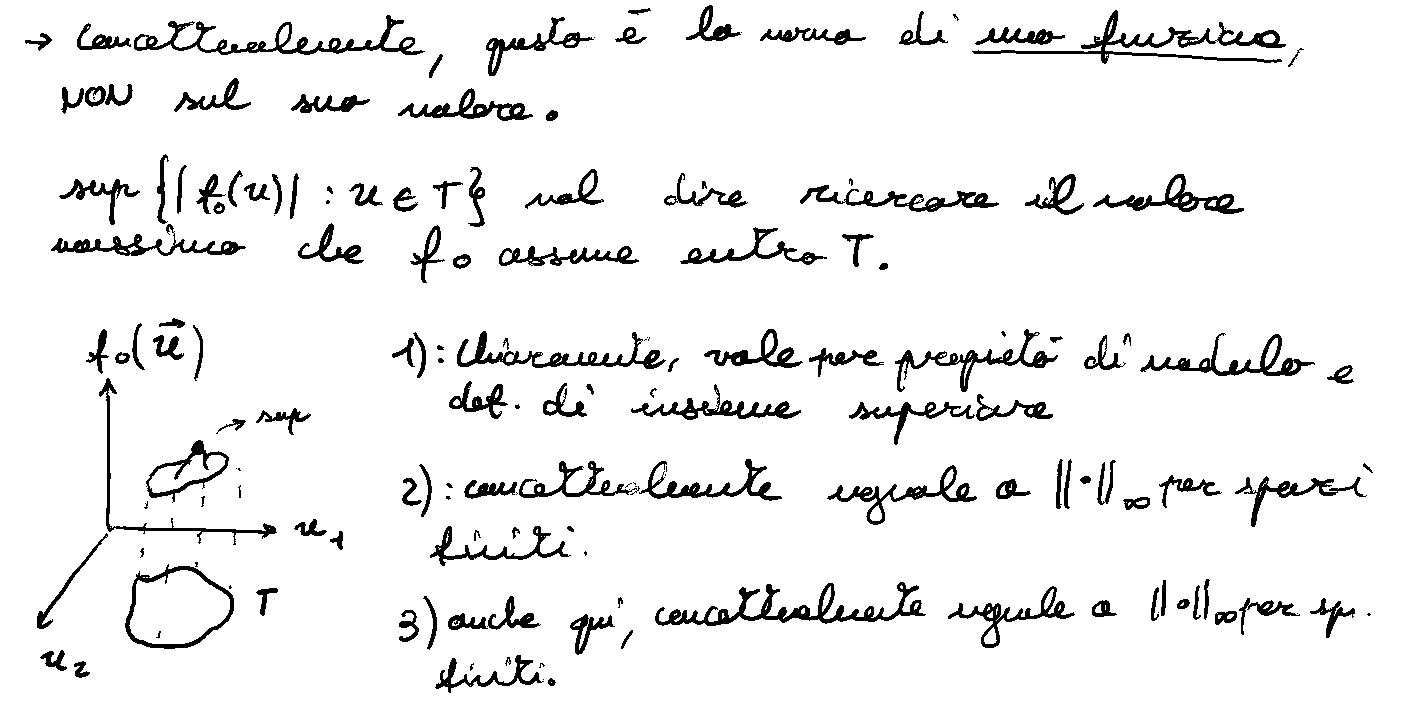 → Concettualmente, questo è la norma di una funzione,
NON sul suo valore.
sup {|f₀(u)| : u ∈ T} vuol dire ricercare il valore
massimo che f₀ assume entro T.
f₀(u⃗)
→ sup
u₁
T
u₂
1): Chiaramente, vale per proprietà di modulo e
def. di insieme superiore
2): concettualmente uguale a ||•||∞ per spazi
finiti.
3) anche qui, concettualmente uguale a ||•||∞ per sp.
finiti.